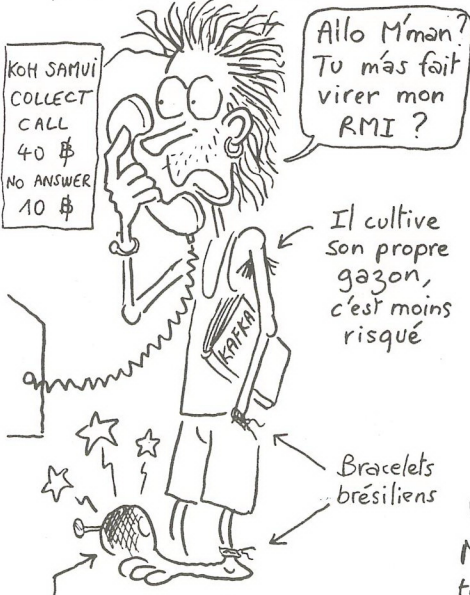 KOH SAMUI
COLLECT
CALL
40 ฿
NO ANSWER
10 ฿
Allo M'man?
Tu m'as fait
virer mon
RMI ?
Il cultive
son propre
gazon,
c'est moins
risqué
KAFKA
Bracelets
brésiliens